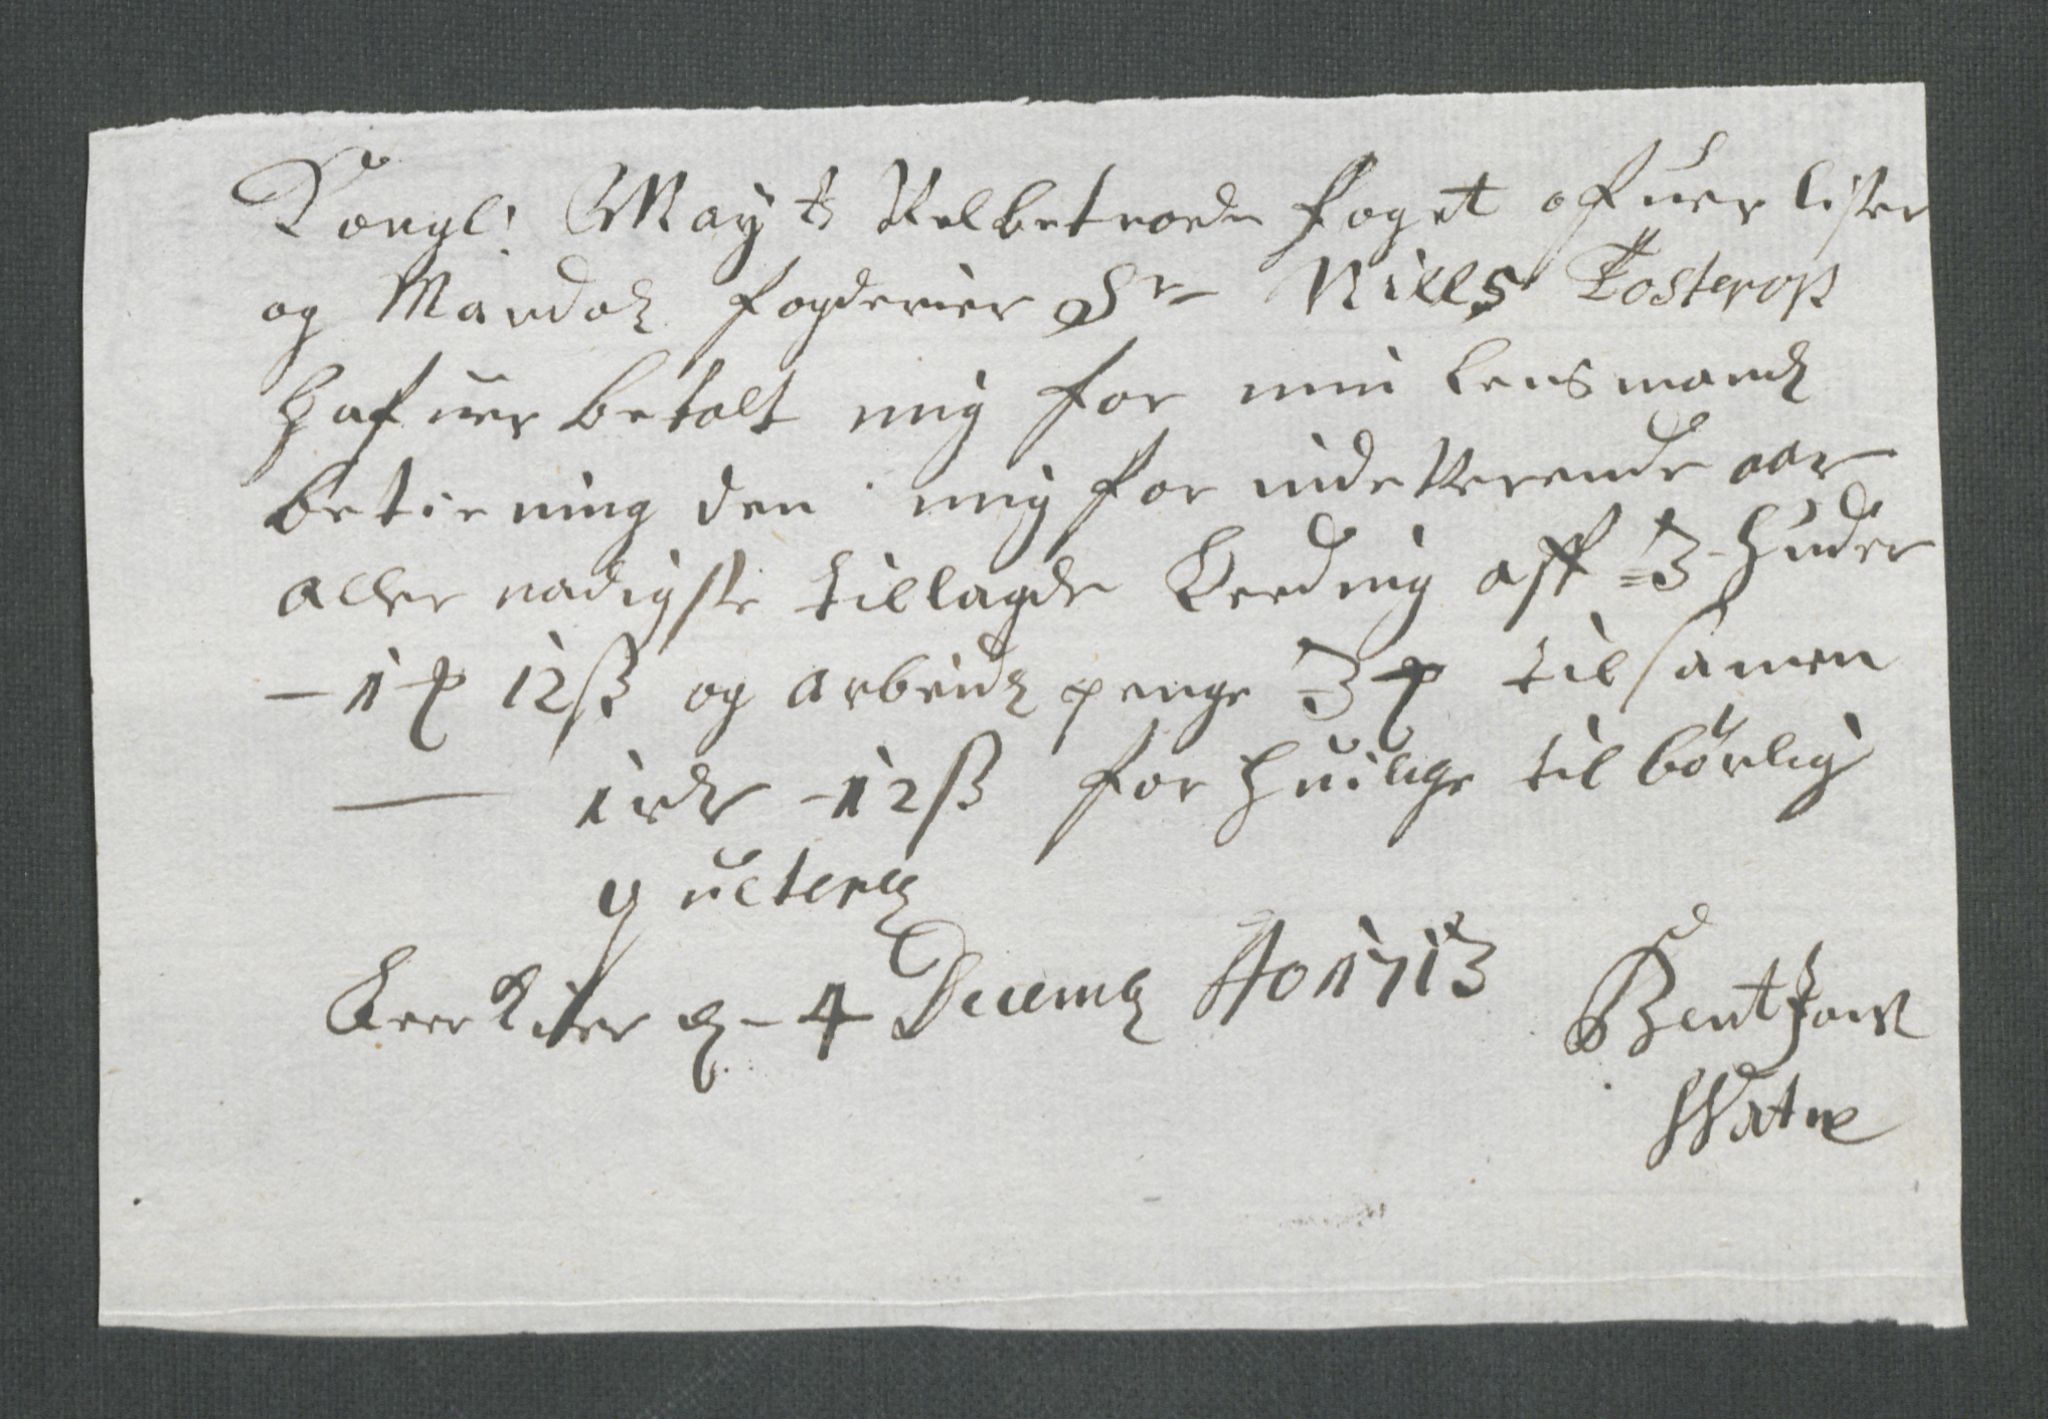 Kongl: May ts Velbetroede foget ofuer lister
og Mandals fogderier Sr Niells Tosterop
hafuer betalt mig for min lensmands
betiening den mig for indeverende aar
aller nadigste tillagde Leeding aff 3 huder
– 1 12 ß og arbeids penge 3 tilsamen
— 1 rdr – 12 ß for huilige tilbørlig
quiterer
d – 4 Decemb Ao 1713 Bent
Watne